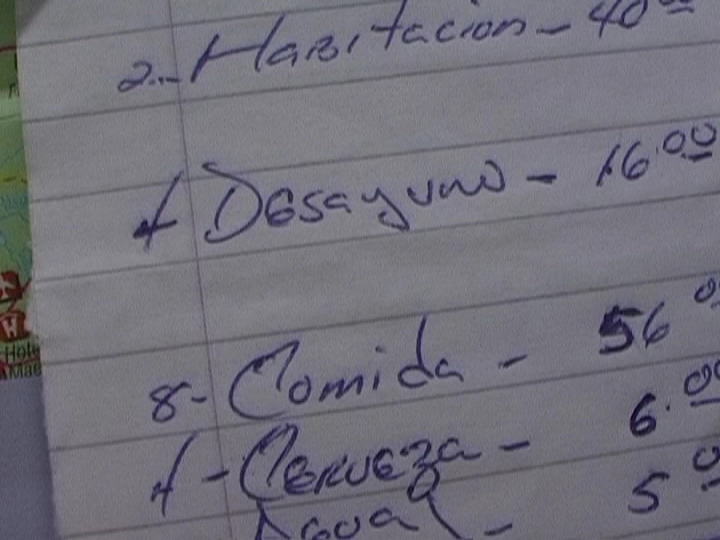 2.- Habitacion - 40.00
4 Desayuno - 16.00
8- Comida - 56.00
4 - Cerveza - 6.00
Agua - 5.0
H
Hote
Mae